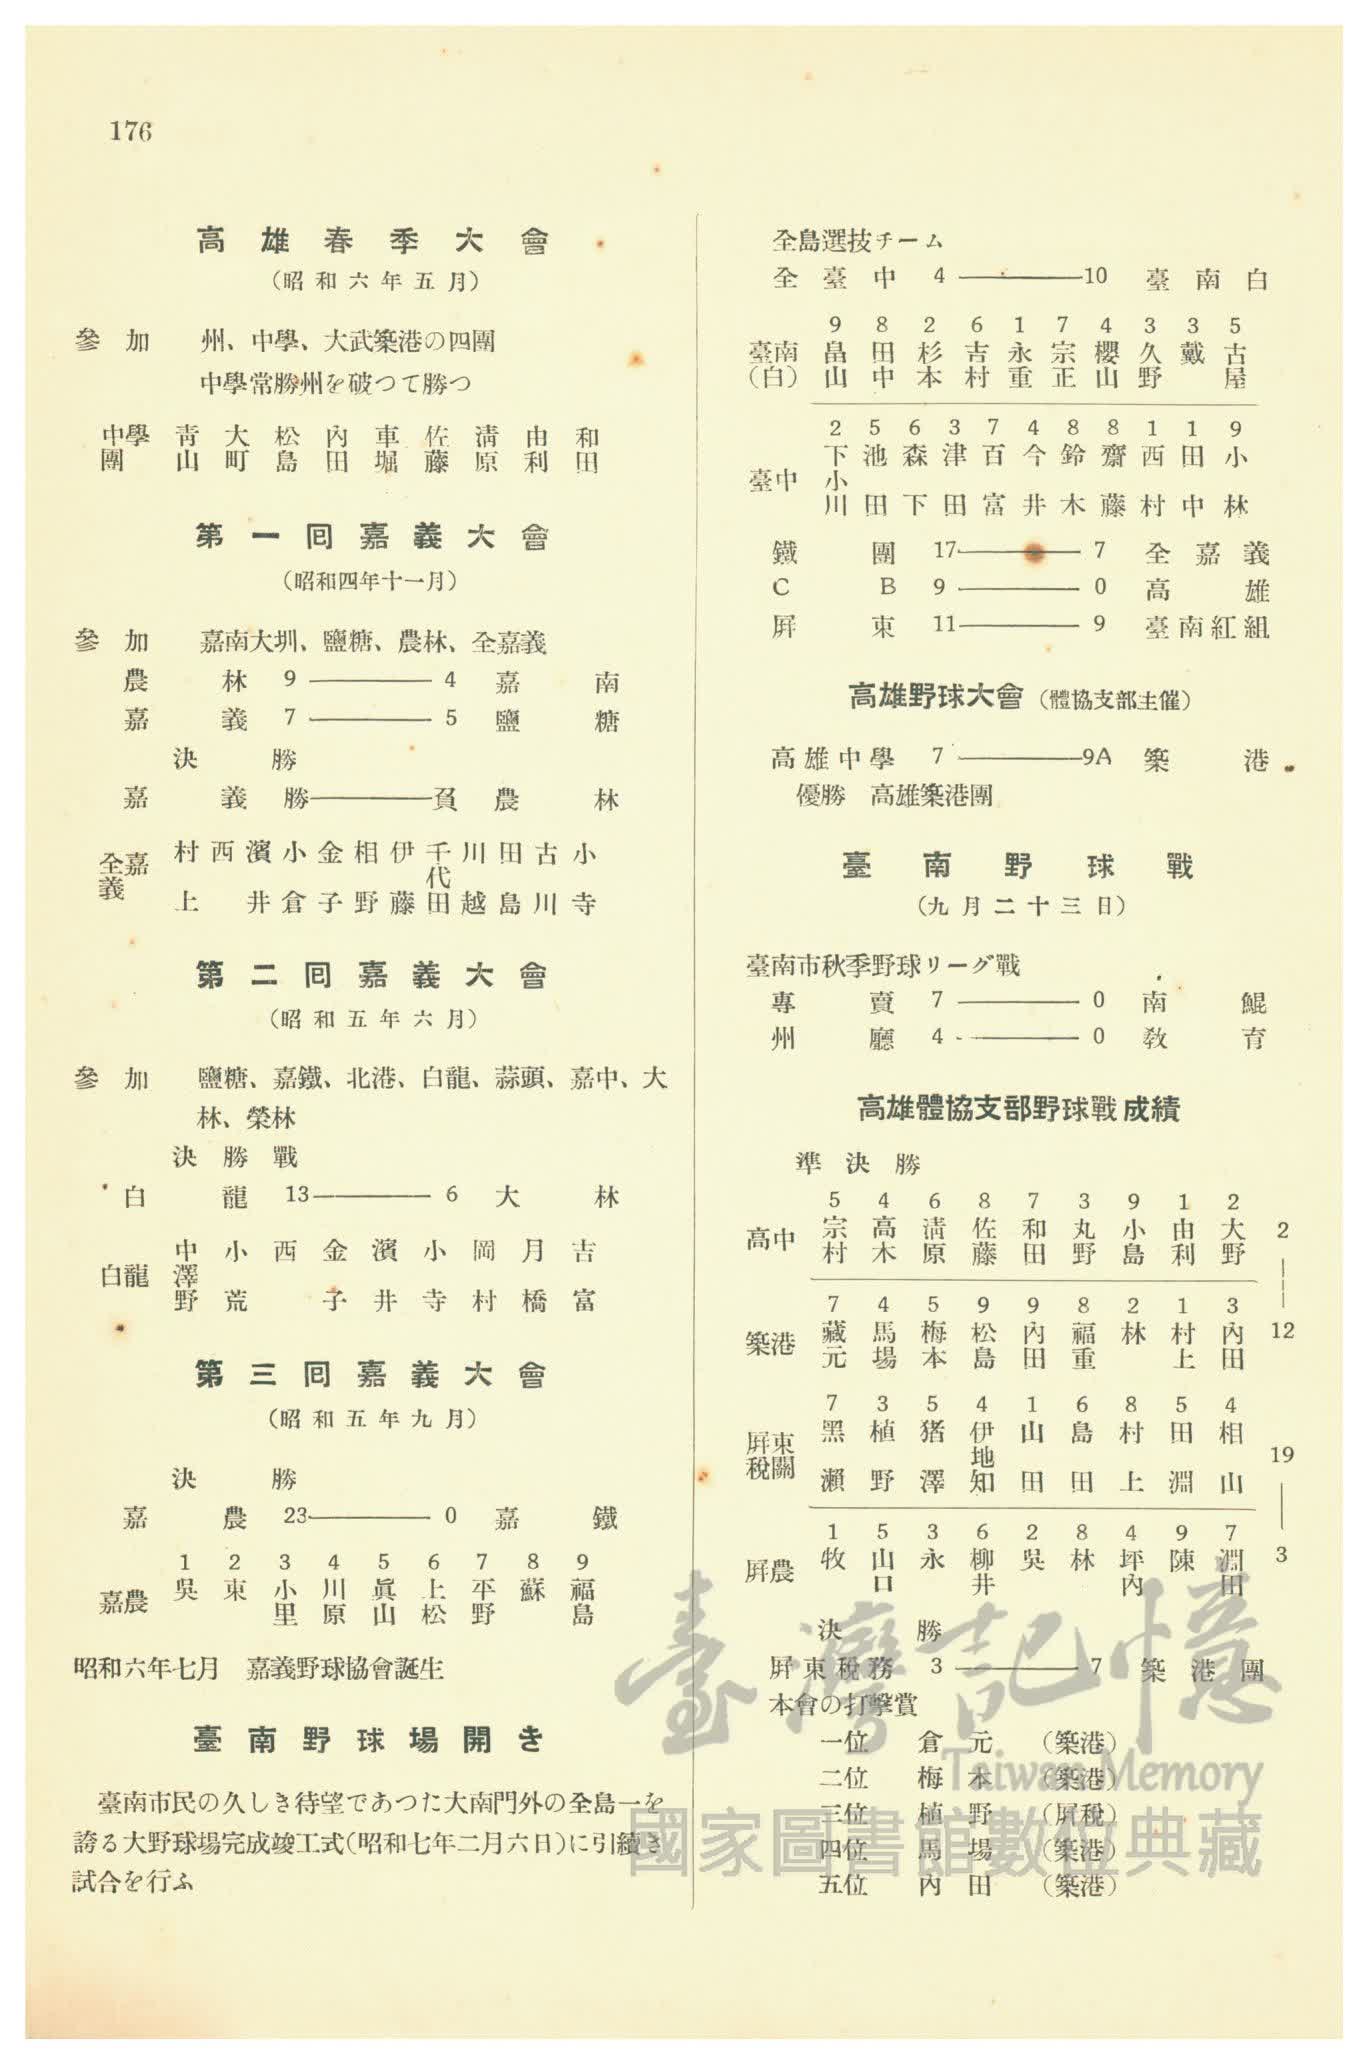 176
高雄春季大會
（昭和六年五月）
參加　州、中學、大武築港の四團
中學常勝州を破つて勝つ
中學團　青山　大町　松島　內田　車堀　佐藤　淸原　由利　和田
第一囘嘉義大會
（昭和四年十一月）
參加　嘉南大圳、鹽糖、農林、全嘉義
農林　9 ——— 4　嘉南
嘉義　7 ——— 5　鹽糖
決勝
嘉義　勝———負　農林
全嘉義　村上　西　濱井　小倉　金子　相野　伊藤　千代田　川越　田島　古川　小寺
第二囘嘉義大會
（昭和五年六月）
參加　鹽糖、嘉鐵、北港、白龍、蒜頭、嘉中、大
林、榮林
決勝戰
白龍　13 ——— 6　大林
白龍　中澤野　小荒　西　金子　濱井　小寺　岡村　月橋　吉富
第三囘嘉義大會
（昭和五年九月）
決勝
嘉農　23 ——— 0　嘉鐵
1 2 3 4 5 6 7 8 9
嘉農　吳　東　小里　川原　眞山　上松　平野　蘇　福島
昭和六年七月　嘉義野球協會誕生
臺南野球場開き
臺南市民の久しき待望であつた大南門外の全島一を
誇る大野球場完成竣工式（昭和七年二月六日）に引續き
試合を行ふ
全島選技チーム
全臺中　4 ——— 10　臺南白
9 8 2 6 1 7 4 3 3 5
臺南（白）　畠山　田中　杉本　吉村　永重　宗正　櫻山　久野　戴　古屋
2 5 6 3 7 4 8 8 1 1 9
臺中　下小川　池田　森下　津田　百富　今井　鈴木　齋藤　西村　田中　小林
鐵團　17 ——— 7　全嘉義
CB　9 ——— 0　高雄
屛東　11 ——— 9　臺南紅組
高雄野球大會（體協支部主催）
高雄中學　7 ——— 9A　築港
優勝　高雄築港團
臺南野球戰
（九月二十三日）
臺南市秋季野球リーグ戰
專賣　7 ——— 0　南鯤
州廳　4 ——— 0　敎育
高雄體協支部野球戰成績
準決勝
5 4 6 8 7 3 9 1 2
高中　宗村　高木　淸原　佐藤　和田　丸野　小島　由利　大野　2
7 4 5 9 9 8 2 1 3
築港　藏元　馬場　梅本　松島　內田　福重　林　村上　內田　12
7 3 5 4 1 6 8 5 4
屛東稅關　黑瀨　植野　猪澤　伊地知　山田　島田　村上　田淵　相山　19
1 5 3 6 2 8 4 9 7
屛農　牧　山口　永　柳井　吳　林　坪內　陳　淵田　3
決勝
屛東稅務　3 ——— 7　築港團
本會の打擊賞
一位　倉元　（築港）
二位　梅本　（築港）
三位　植野　（屛稅）
四位　馬場　（築港）
五位　內田　（築港）
臺灣記憶
Taiwan Memory
國家圖書館數位典藏